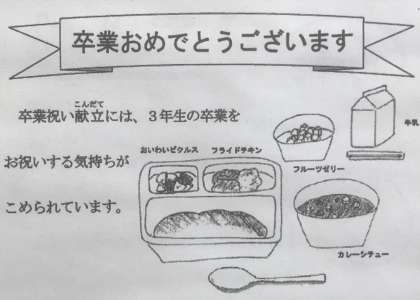 卒業おめでとうございます
こんだて
卒業祝い献立には、３年生の卒業を
お祝いする気持ちが
こめられています。
おいわいピクルス
フライドチキン
フルーツゼリー
牛乳
カレーシチュー